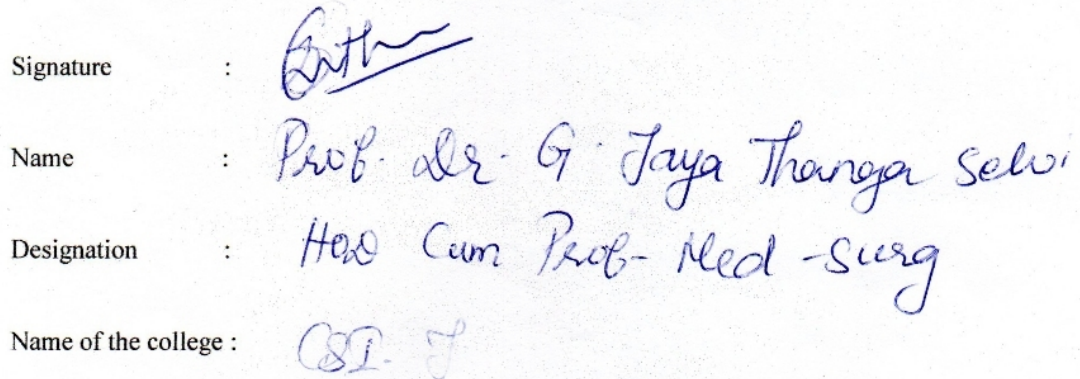 Signature :
Name : Prof. Dr. G. Jaya Thanga Selvi
Designation : HOD Cum Prof- Med -Surg
Name of the college : CSI. J